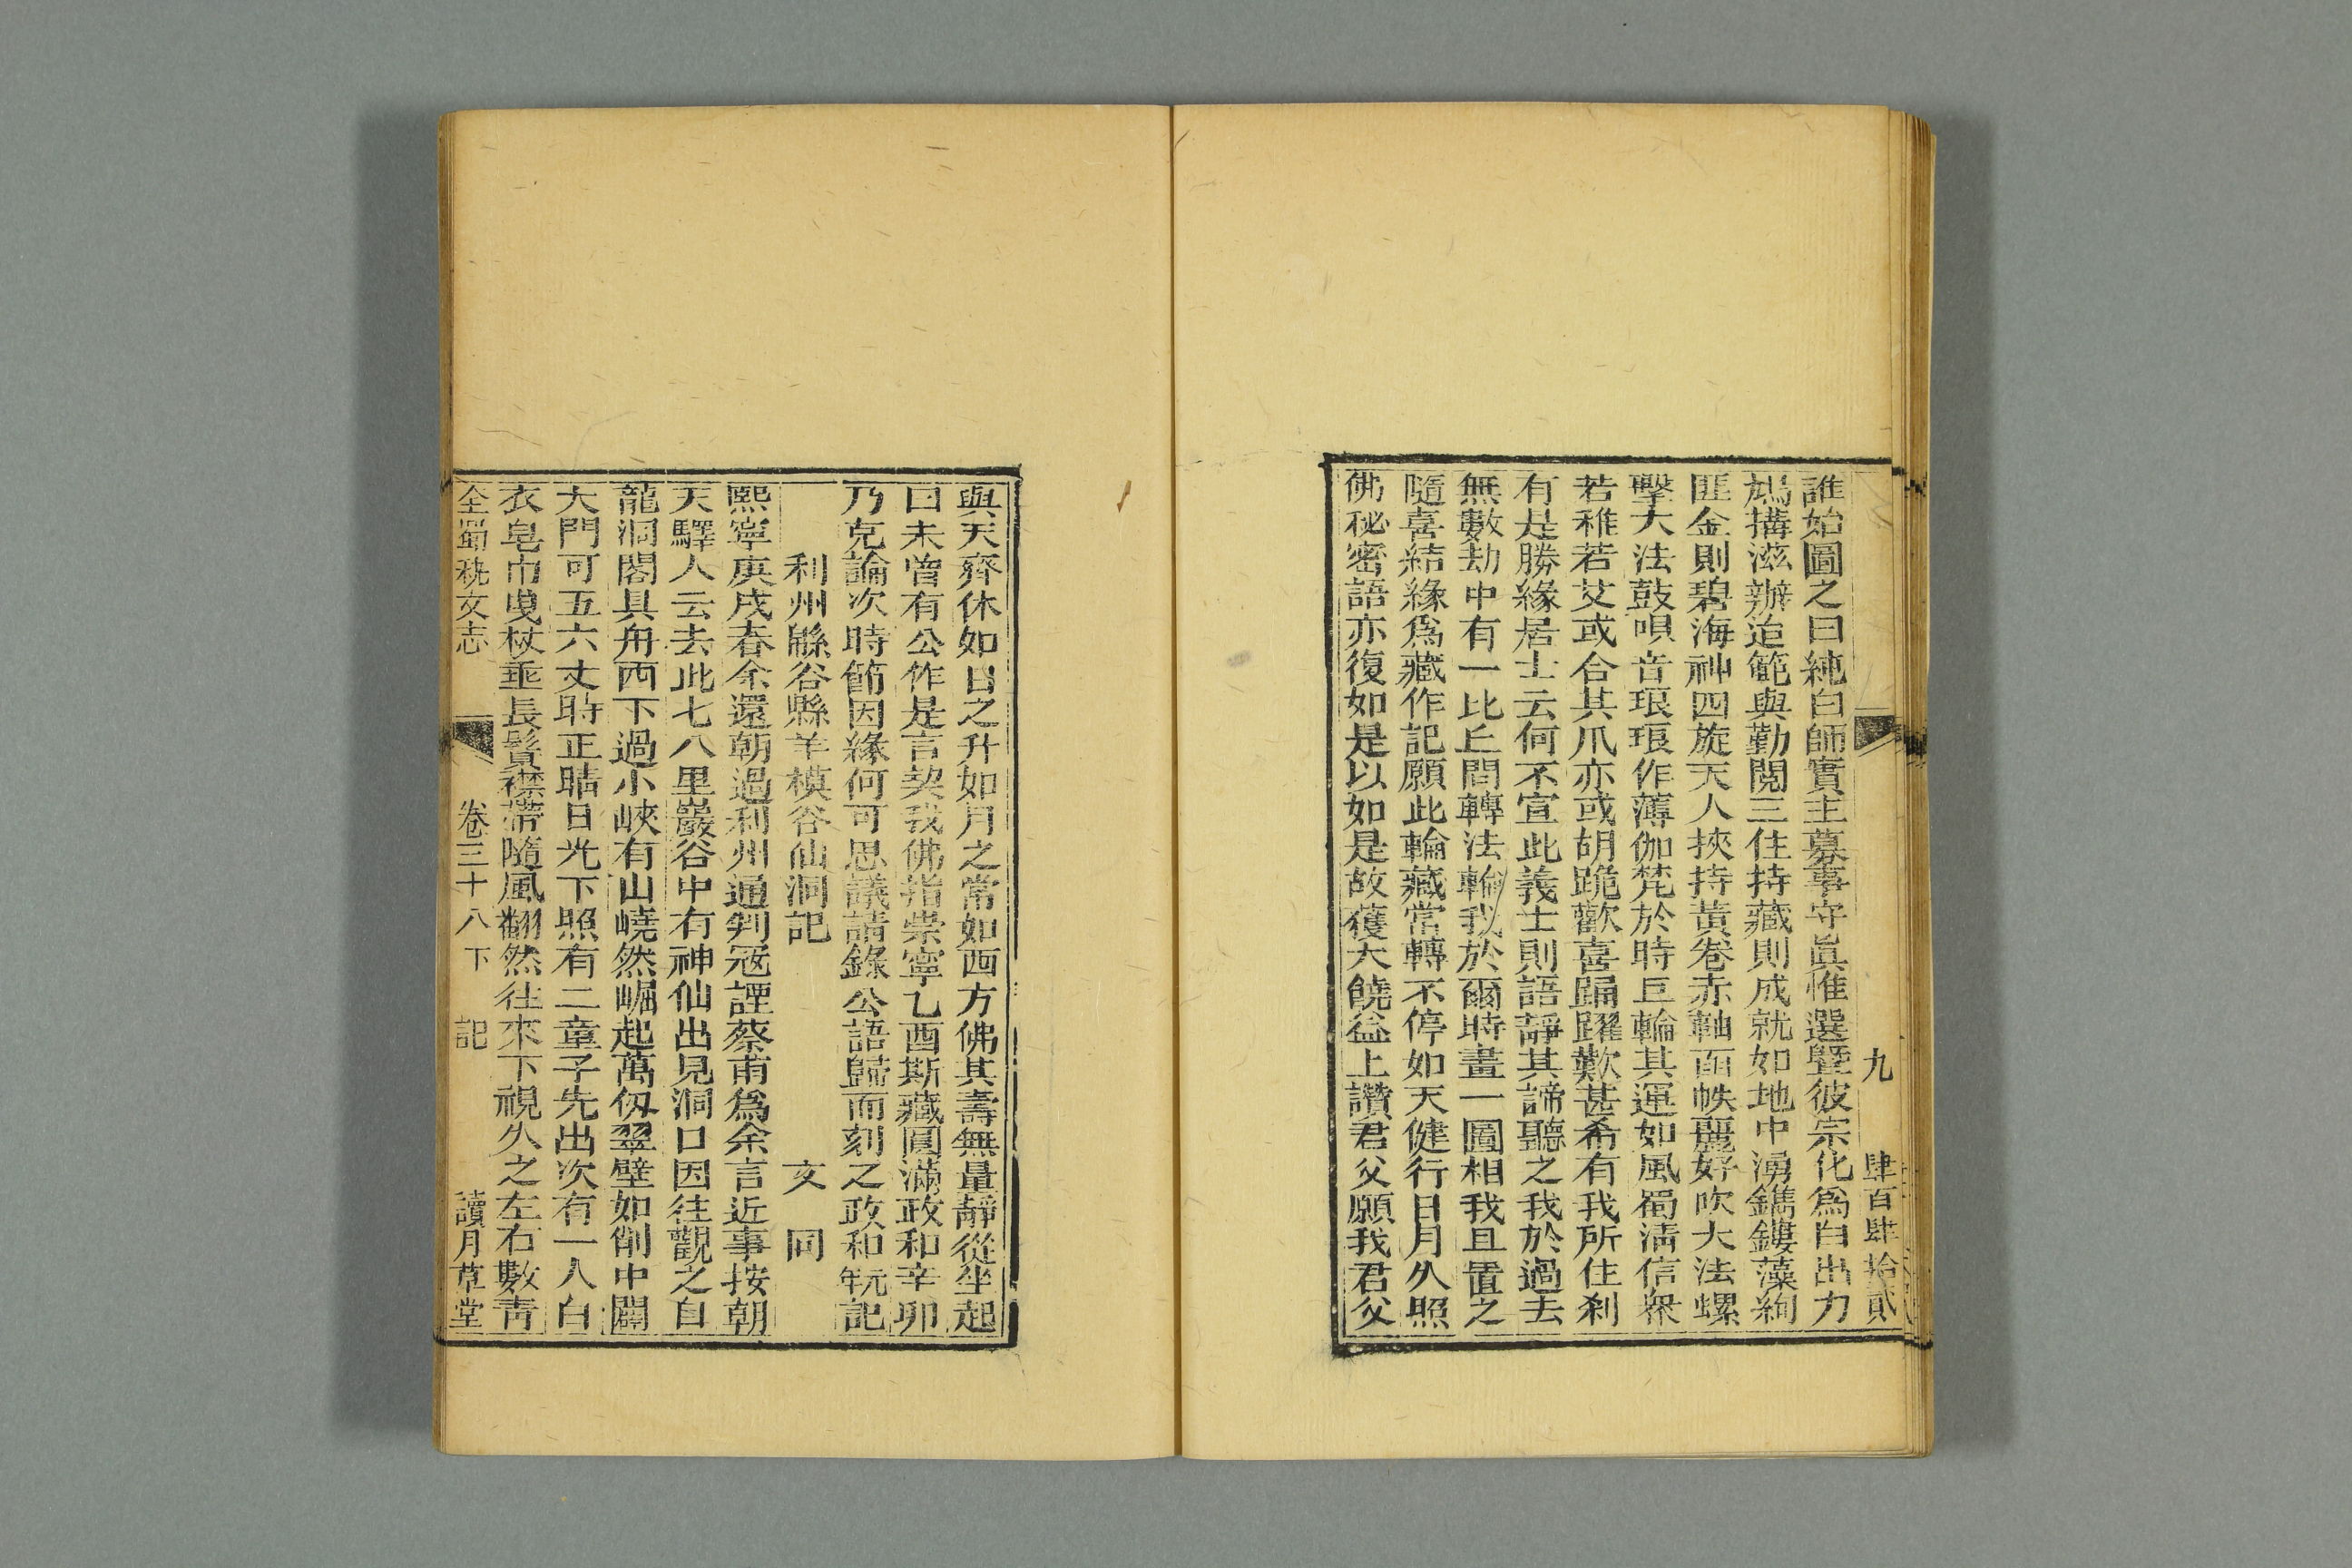 九 肆百肆拾貳
誰始圖之曰純白師實主募事守眞惟選曁彼宗化爲白出力
鳩搆滋辦造範與勤閱三住持藏則成就如地中湧鐫鏤藻絢
匪金則碧海神四旋天人挾持黃卷赤軸函帙麗好吹大法螺
擊大法鼓唄音琅琅作薄伽梵於時巨輪其運如風蜀淸信衆
若稚若艾或合其爪亦或胡跪歡喜踊躍歎甚希有我所住刹
有是勝緣居士云何不宣此義士則語靜其諦聽之我於過去
無數劫中有一比丘問轉法輪我於爾時畫一圓相我且置之
隨喜結緣爲藏作記願此輪藏常轉不停如天健行日月久照
佛秘密語亦復如是以如是故獲大饒益上讚君父願我君父
與天齊休如日之升如月之常如西方佛其壽無量靜從坐起
曰未曾有公作是言契我佛指崇寧乙酉斯藏圓滿政和辛卯
乃克論次時節因緣何可思議請錄公語歸而刻之政和元年記
利州緜谷縣羊模谷仙洞記 文同
熙寧庚戌春余還朝過利州通判寇諲蔡甫爲余言近事按朝
天驛人云去此七八里巖谷中有神仙出見洞口因往觀之自
龍洞閣具舟西下過小峽有山嶢然崛起萬仞翠壁如削中闢
大門可五六丈時正晴日光下照有二童子先出次有一人白
衣皂巾曳杖垂長鬚襟帶隨風翻然往來下視久之左右數靑
全蜀秇文志 卷三十八下 記 讀月草堂